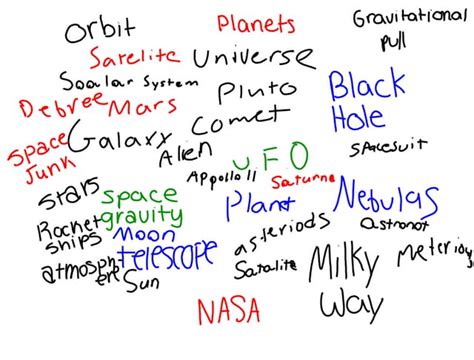 Orbit
Planets
Gravitational
pull
Satelite
Universe
Soalar System
Pluto
Black
Hole
Debree
Mars
Comet
Space
Junk
Galaxy
Alien
UFO
spacesuit
Appollo 11
Saturne
Stars
Space
gravity
Planet
Nebulas
Rocket
ships
Moon
asteriods
astronot
atmosph
ere
telescope
Satalite
Milky
Way
Sun
NASA